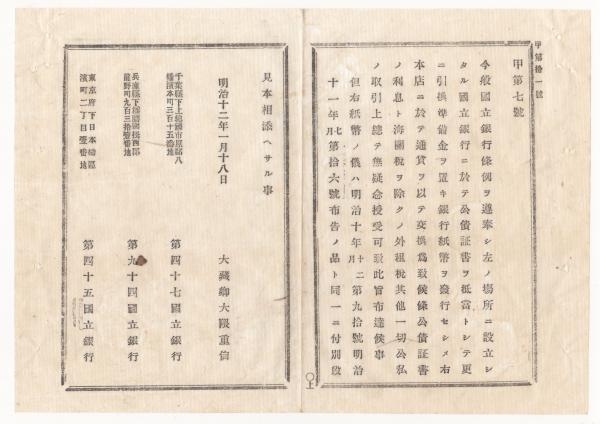 甲第拾一號
甲第七號
今般國立銀行條例ヲ遵奉シ左ノ場所ニ設立シ
タル國立銀行ニ於テ公債証書ヲ抵當トシテ更
ニ引換準備金ヲ置キ銀行紙幣ヲ發行セシメ右
本店ニ於テ通貨ヲ以テ交換爲致候條公債証書
ノ利息ト海關稅ヲ除クノ外租稅其他一切公私
ノ取引上總テ無疑念授受可致此旨布達候事
但右紙幣ノ儀ハ明治十年十二月第九拾號明治
十一年七月第拾六號布告ノ品ト同一ニ付別段
見本相添ヘサル事
明治十二年一月十八日
大藏卿大隈重信
千葉縣下上總國市原郡八
幡濱本町三百十五番地
第四十七國立銀行
兵庫縣下播磨國揖西郡
龍野町九百三拾壹番地
第九十四國立銀行
東京府下日本橋區
濱町二丁目壹番地
第四十五國立銀行
上